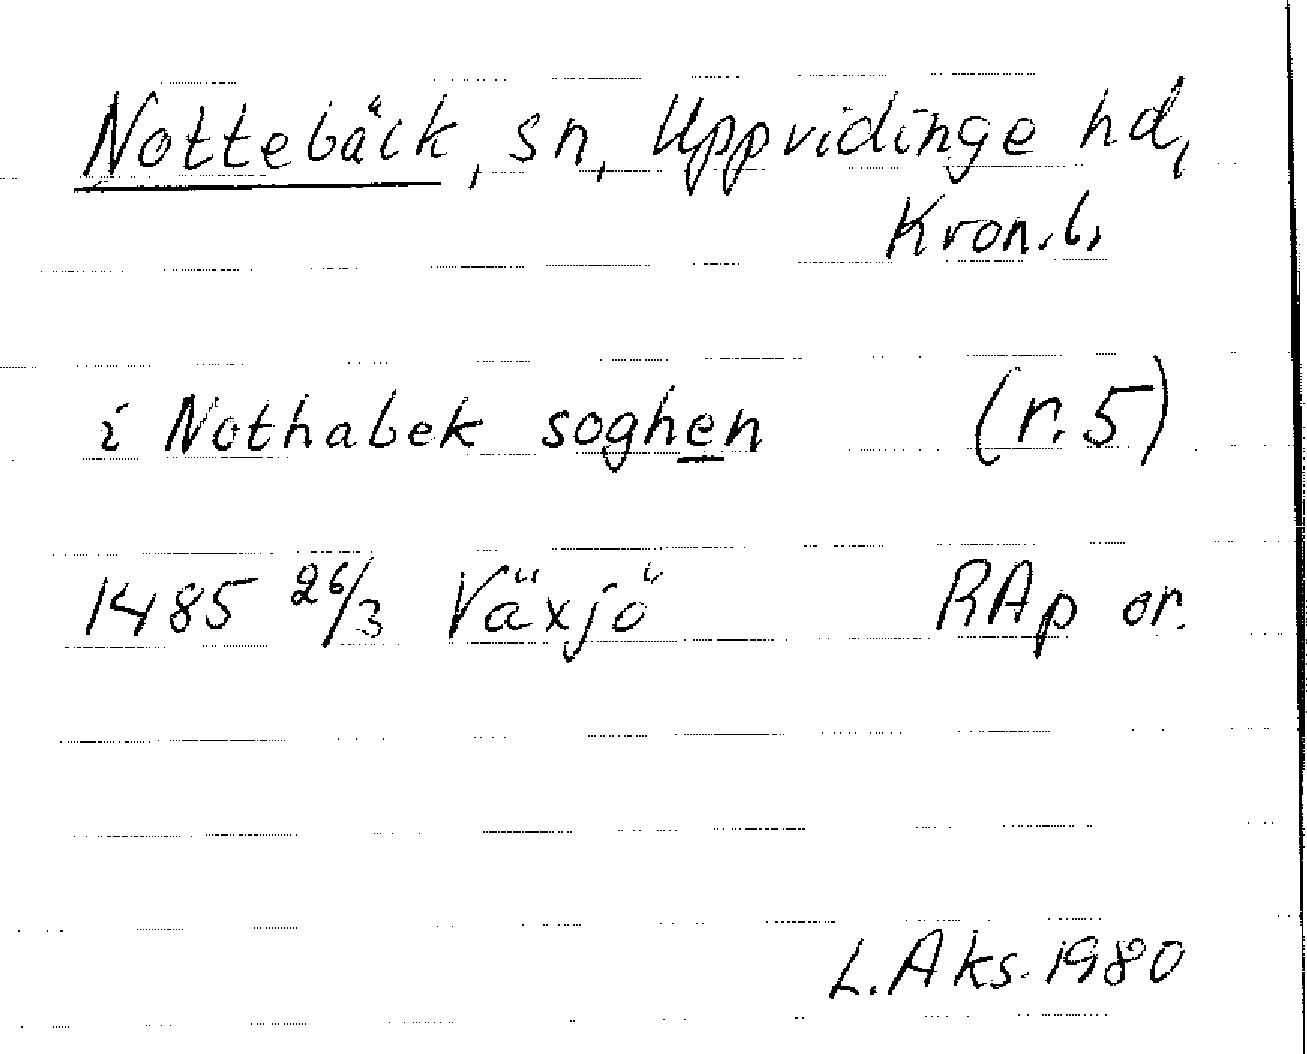 Nottebäck, sn, Uppvidinge hd,
Kron.l,
i Nothabek soghen (r.5)
1485 26/3 Växjö RAp or.
L.Aks. 1980